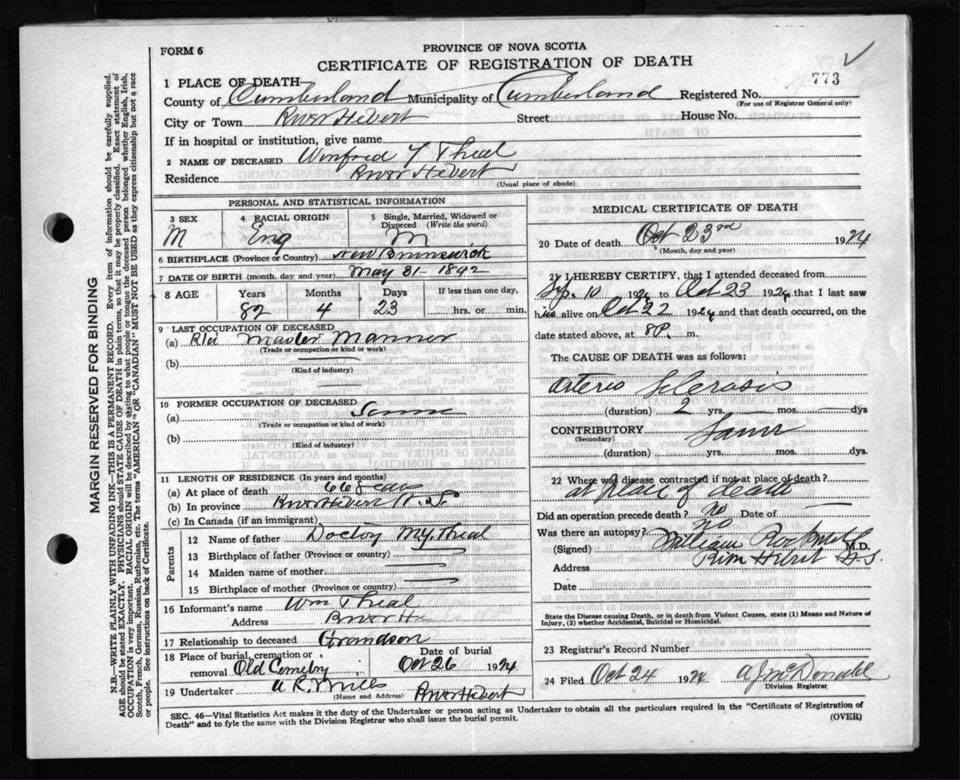 FORM 6
PROVINCE OF NOVA SCOTIA
CERTIFICATE OF REGISTRATION OF DEATH
773
1 PLACE OF DEATH
County of Cumberland Municipality of Cumberland Registered No.
(For use of Registrar General only)
City or Town River Hebert Street House No.
If in hospital or institution, give name
2 NAME OF DECEASED Winfred T Theal
Residence River Hebert
(Usual place of abode)
PERSONAL AND STATISTICAL INFORMATION
3 SEX 4 RACIAL ORIGIN 5 Single, Married, Widowed or Divorced (Write the word)
M Eng M
6 BIRTHPLACE (Province or Country) New Brunswick
7 DATE OF BIRTH (month, day and year) May 31 - 1842
8 AGE Years Months Days If less than one day,
82 4 23 hrs. or min.
9 LAST OCCUPATION OF DECEASED
(a) Master Marrner
(Trade or occupation or kind of work)
(b)
(Kind of industry)
10 FORMER OCCUPATION OF DECEASED
(a) Same
(Trade or occupation or kind of work)
(b)
(Kind of industry)
11 LENGTH OF RESIDENCE (In years and months)
(a) At place of death 66 years
(b) In province River Hebert N.S.
(c) In Canada (if an immigrant)
Parents
12 Name of father Doctor Theal
13 Birthplace of father (Province or country)
14 Maiden name of mother
15 Birthplace of mother (Province or country)
16 Informant's name Wm Theal
Address River H
17 Relationship to deceased Grandson
18 Place of burial, cremation or removal Old Cemetry Date of burial Oct 26 1924
19 Undertaker A. R. Mills River Hebert
(Name and Address)
MEDICAL CERTIFICATE OF DEATH
20 Date of death Oct 23rd 1924
(Month, day and year)
21 I HEREBY CERTIFY, that I attended deceased from
Sep. 10 1924 to Oct 23 1924 that I last saw
him alive on Oct 22 1924 and that death occurred, on the
date stated above, at 8 P. m.
The CAUSE OF DEATH was as follows:
Arterio Sclerosis
(duration) 2 yrs. mos. dys
CONTRIBUTORY Same
(Secondary)
(duration) yrs. mos. dys
22 Where was disease contracted if not at place of death?
at place of death
Did an operation precede death? no Date of
Was there an autopsy? no
(Signed) William M.D.
Address River Hebert N.S.
Date
State the Disease causing Death, or in death from Violent Causes, state (1) Means and Nature of
Injury, (2) whether Accidental, Suicidal or Homicidal.
23 Registrar's Record Number
24 Filed Oct 24 1924 A J McDonald
Division Registrar
SEC. 46—Vital Statistics Act makes it the duty of the Undertaker or person acting as Undertaker to obtain all the particulars required in the "Certificate of Registration of
Death" and to fyle the same with the Division Registrar who shall issue the burial permit.
(OVER)
MARGIN RESERVED FOR BINDING
N.B.—WRITE PLAINLY WITH UNFADING INK—THIS IS A PERMANENT RECORD. Every item of information should be carefully supplied.
AGE should be stated EXACTLY. PHYSICIANS should STATE CAUSE OF DEATH in plain terms, so that it may be properly classified. Exact statement of
OCCUPATION is very important. RACIAL ORIGIN will be described by stating to what people or tongue the deceased person belonged, whether English, Irish,
Scotch, French, German, Russian, Ruthenian, etc. The terms "AMERICAN" OR "CANADIAN" MUST NOT BE USED as they express citizenship but not a race
or people. See instructions on back of Certificate.